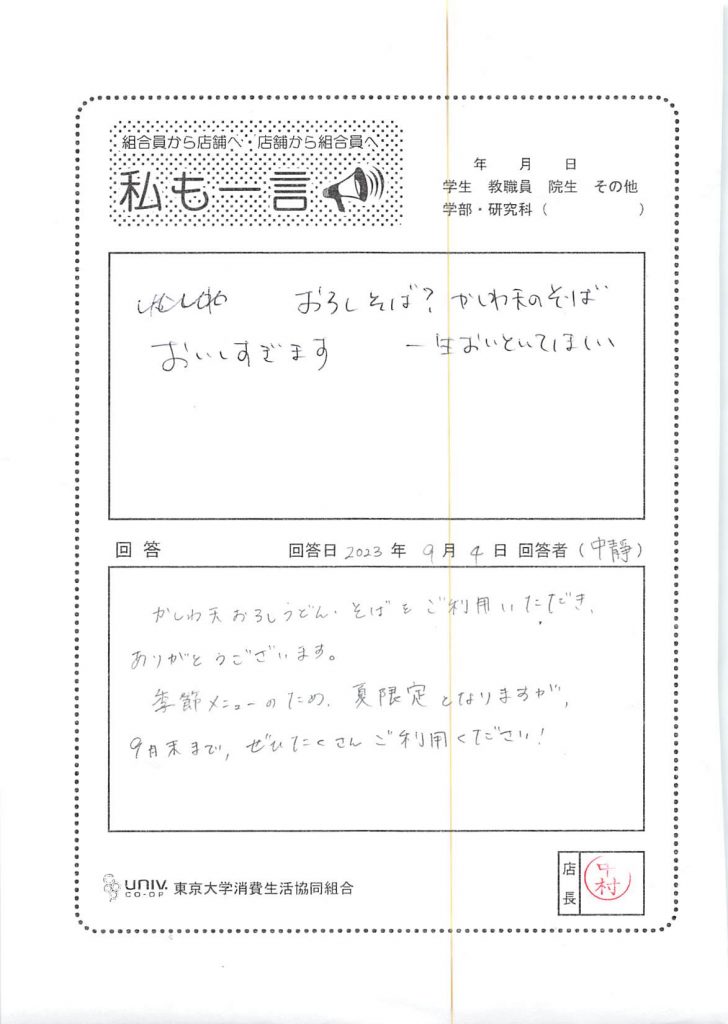 組合員から店舗へ・店舗から組合員へ
私も一言
年 月 日
学生 教職員 院生 その他
学部・研究科 ( )
おろしそば？ かしわ天のそば
おいしすぎます 一生おいといてほしい
回答 回答日 2023 年 9 月 4 日 回答者 (中靜)
かしわ天おろしうどん・そばをご利用いただき、
ありがとうございます。
季節メニューのため、夏限定となりますが、
9月末まで、ぜひたくさんご利用ください！
UNIV. CO-OP 東京大学消費生活協同組合
店長 中村